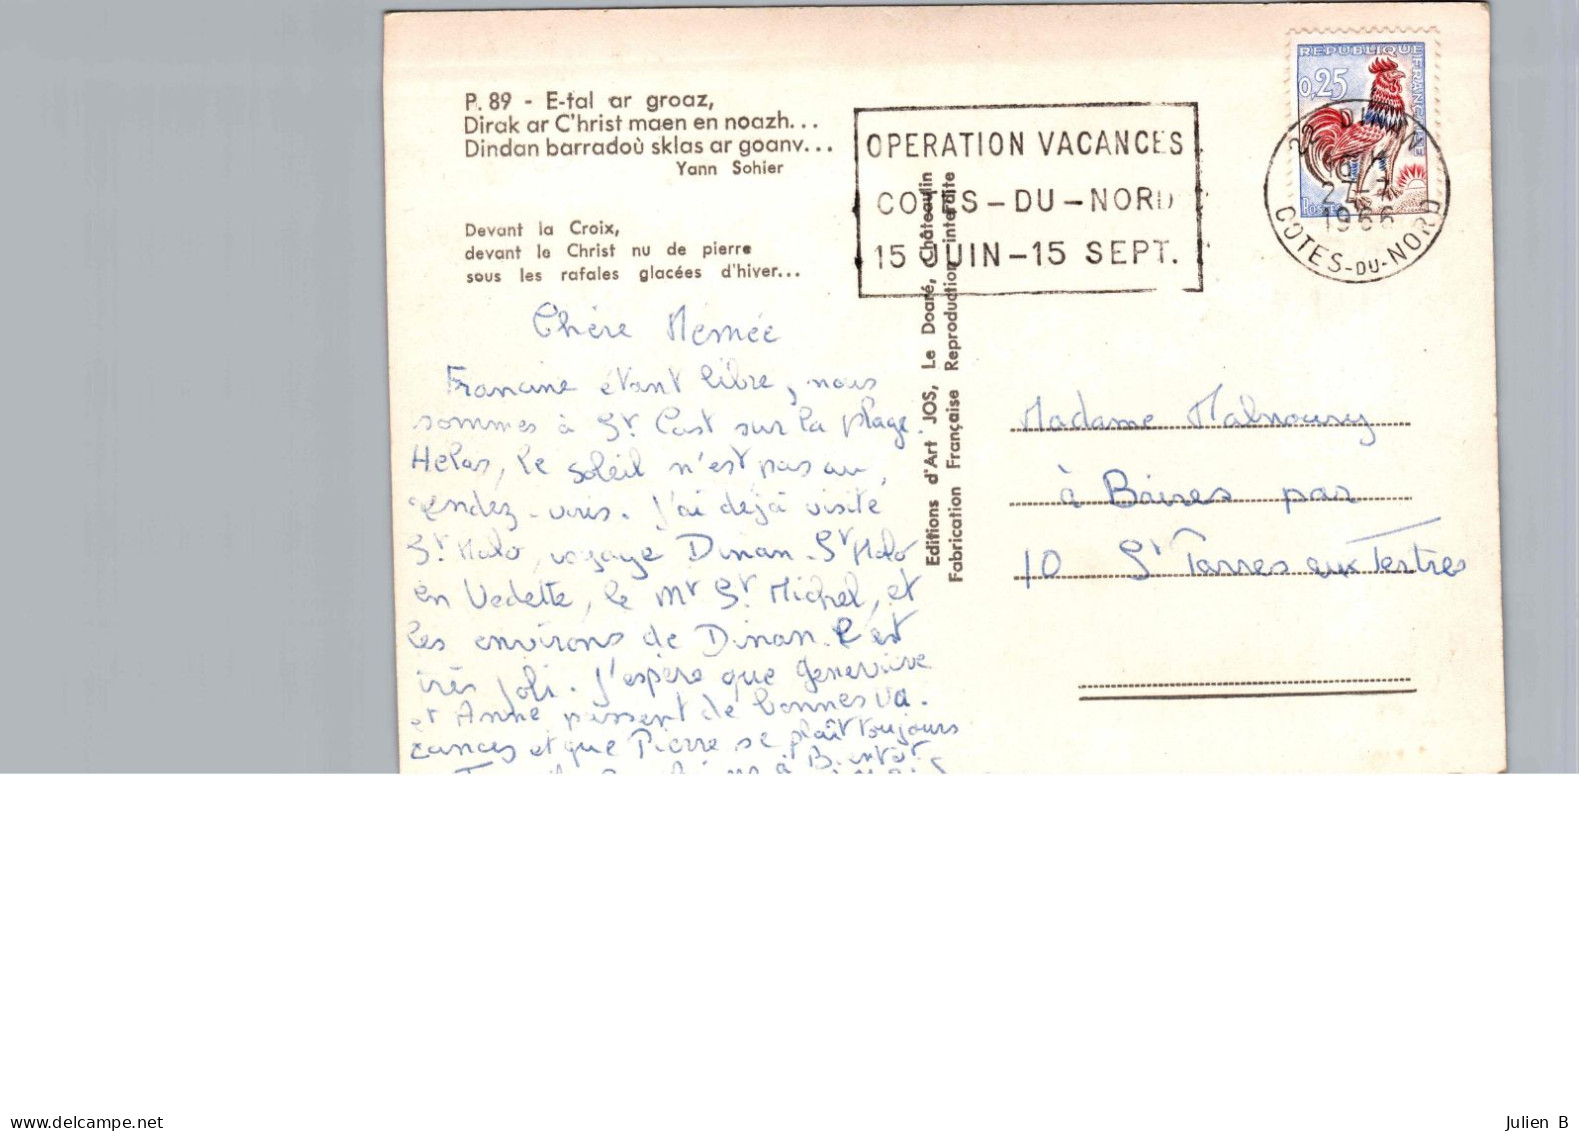 P. 89 - E-tal ar groaz,
Dirak ar C'hrist maen en noazh...
Dindan barradoù sklas ar goanv...
Yann Sohier
Devant la Croix,
devant le Christ nu de pierre
sous les rafales glacées d'hiver...
OPERATION VACANCES
COTES-DU-NORD
15 JUIN-15 SEPT.
REPUBLIQUE FRANCAISE
0,25
POSTES
22 DINAN
1966
COTES-DU-NORD
Editions d'Art JOS, Le Doaré, Châteaulin
Fabrication Française Reproduction interdite
Chère Mémée
Francine étant libre, nous
sommes à St Cast sur la plage.
Helas, le soleil n'est pas au
rendez-vous. J'ai déjà visité
St Malo, voyage Dinan-St Malo
en Vedette, le Mt St Michel, et
les environs de Dinan. C'est
très joli. J'espère que Geneviève
et Anne passent de bonnes va-
cances et que Pierre se plaît toujours
à Bientôt
Madame Malnoury
à Baires par
10 St Parres aux Tertres
delcampe.net
Julien B